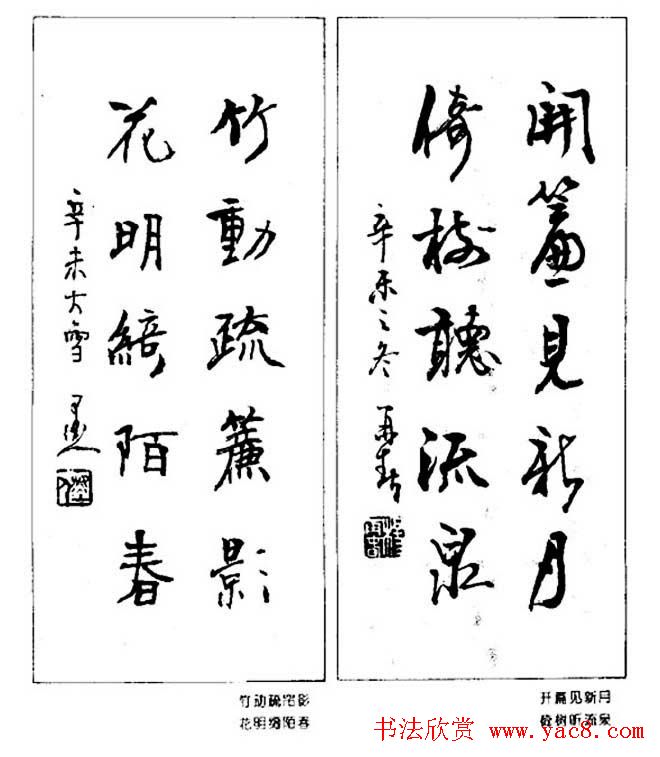 開簾見新月
倚樹聽流泉
辛未之冬
竹動疏簾影
花明綺陌春
辛未大雪
竹动疏帘影
花明绮陌春
开帘见新月
倚树听流泉
书法欣赏 www.yac8.com